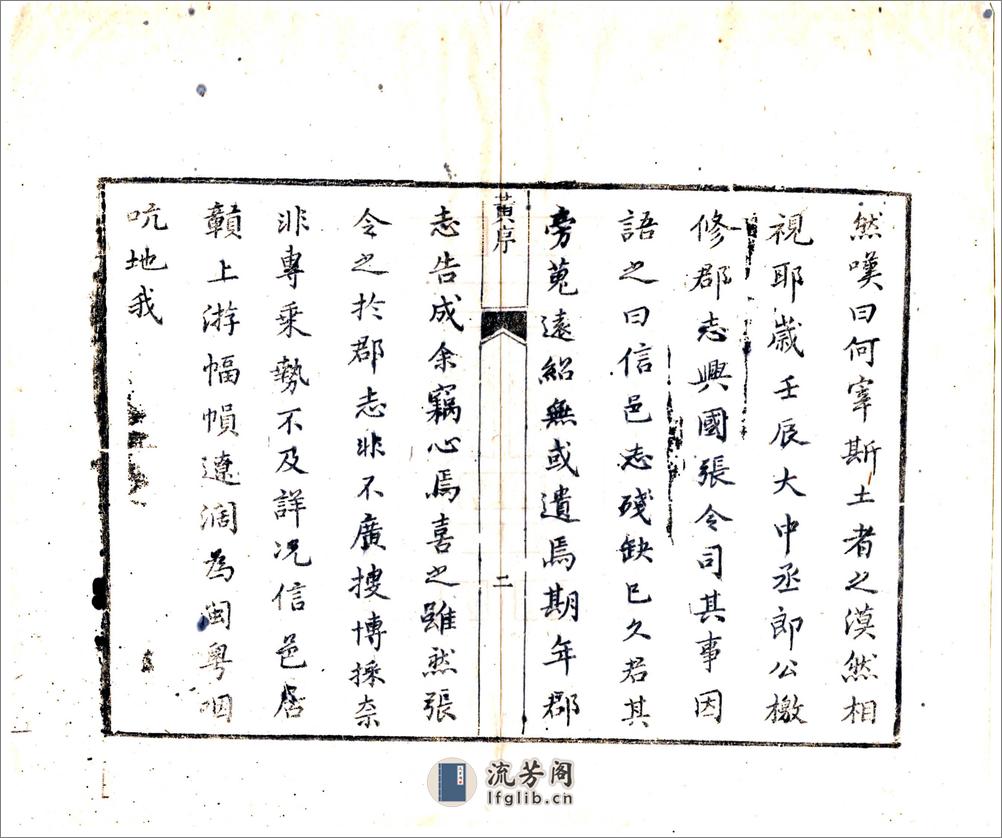 然嘆曰何宰斯土者之漠然相
視耶歲壬辰大中丞郎公檄
修郡志興國張令司其事因
語之曰信邑志殘缺已久若其
旁蒐遠紹無或遺焉期年郡
黃序
二
志告成余竊心焉喜之雖然張
令之於郡志非不廣搜博採奈
非專乘勢不及詳况信邑居
贛上游幅幀遼濶為閩粵咽
吭地我
流芳阁
lfglib.cn